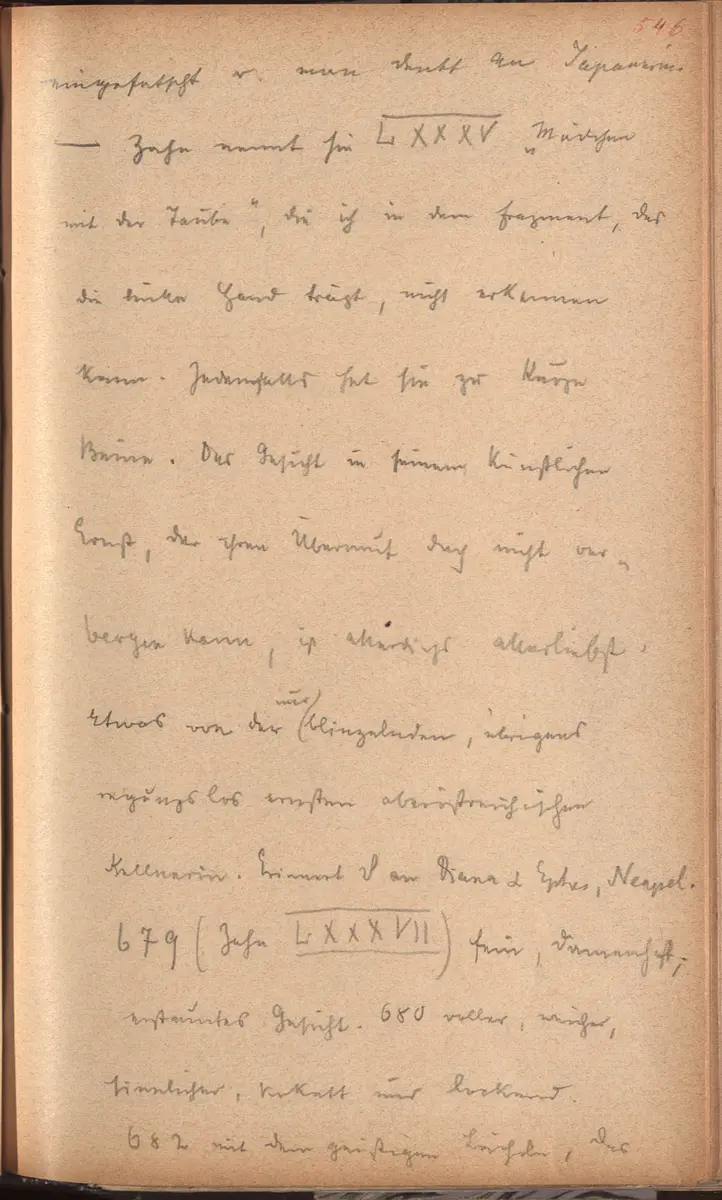 546
eingefatscht u. man denkt an Japanerin.
— Zahn nennt sie LXXXV „Mädchen
mit der Taube“, die ich in dem Fragment, das
die linke Hand trägt, nicht erkennen
kann. Jedenfalls hat sie zu kurze
Beine. Das Gesicht in seinem künstlichen
Ernst, der ihren Übermut doch nicht ver-
bergen kann, ist allerdings allerliebst.
Etwas von der (nur) blinzelnden, übrigens
regungslos ernsten oberösterreichischen
Kellnerin. Erinnert an Diana Ephes, Neapel.
679 (Zahn LXXXVII) fein, damenhaft,
erstauntes Gesicht. 680 voller, weicher,
sinnlicher, kokett und lockend.
682 mit dem geistigen Lächeln, das